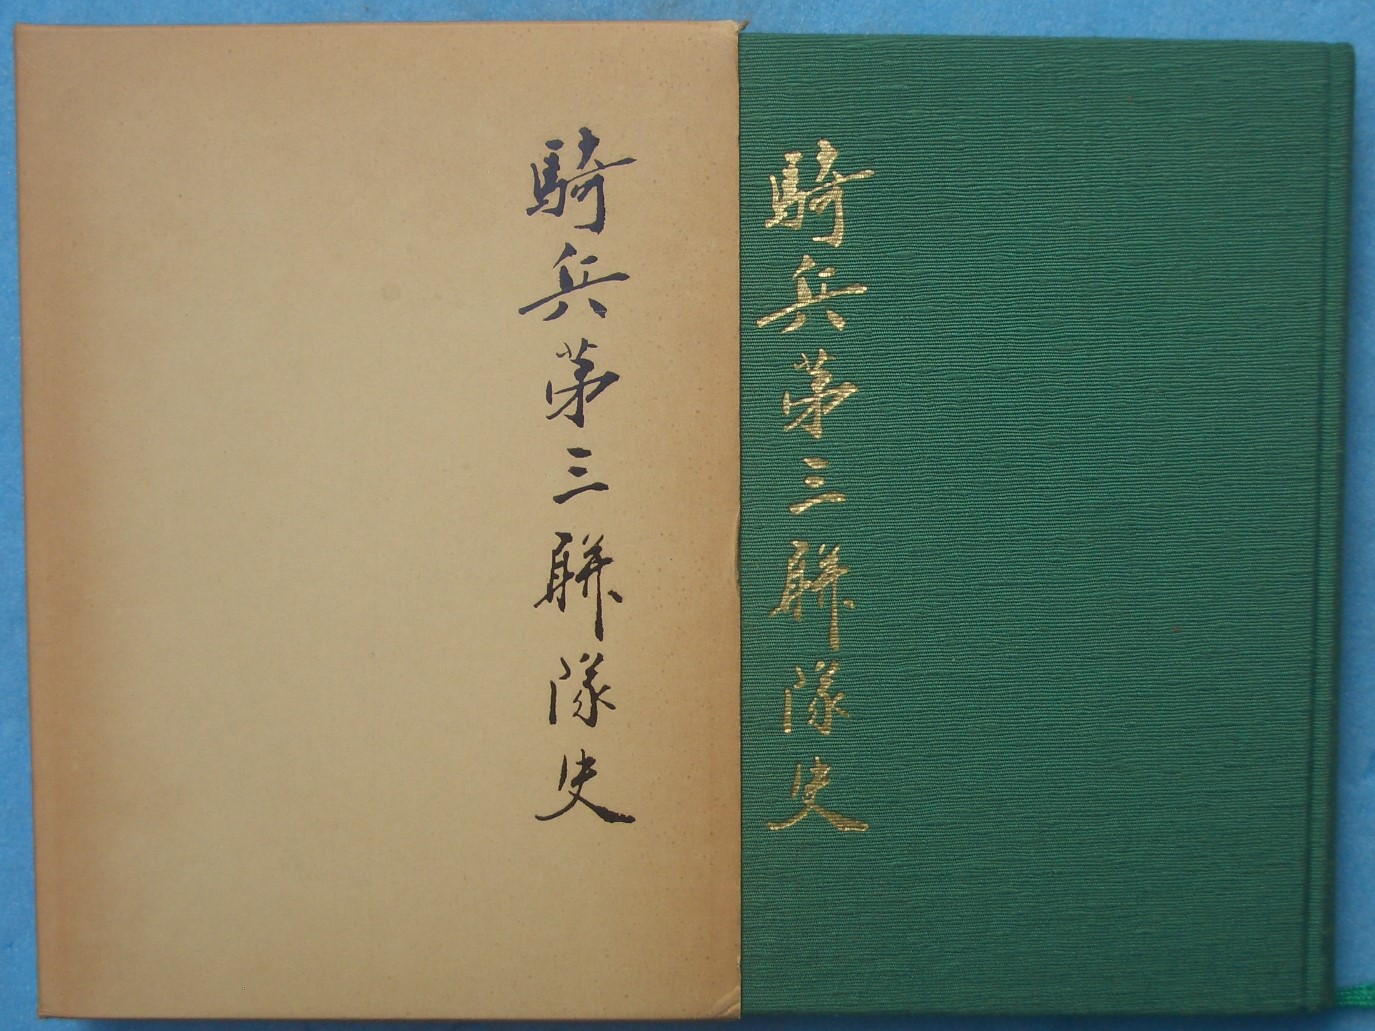 騎兵第三聯隊史
騎兵第三聯隊史